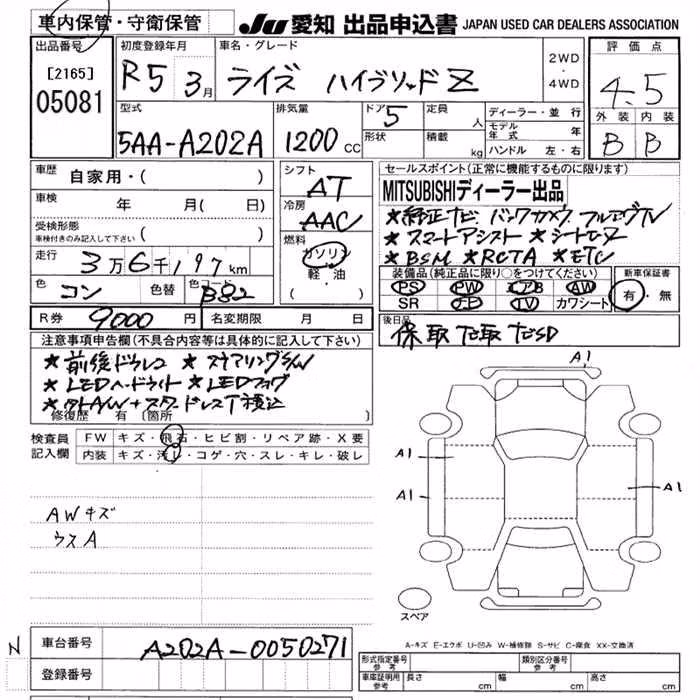 車内保管・守衛保管 JU 愛知 出品申込書 JAPAN USED CAR DEALERS ASSOCIATION
出品番号 初度登録年月 車名・グレード 評価点
[2165] R5 3月 ライズ ハイブリッド Z 2WD・4WD 4.5
05081
型式 排気量 ドア 5 定員 人 ディーラー・並行 外装 内装
5AA-A202A 1200cc 形状 積載 kg モデル年式 年 B B
ハンドル 左・右
車歴 自家用・( )
車検 年 月( 日)
受検形態 車検付きのみ記入して下さい ( )
走行 3万6千197km
色 コン 色替 色コード B82
シフト AT
冷房 AAC
燃料 ガソリン
軽・油
・( )
セールスポイント(正常に機能するものに限ります)
MITSUBISHIディーラー出品
★純正ナビ. バックカメラ. フルセグTV
★スマートアシスト ★シートヒーター
★BSM ★RCTA ★ETC
装備品(純正品に限り○をつけてください) 新車保証書
PS PW エアB AW 有・無
SR ナビ TV カワシート
R券 9000円 名変期限 月 日
後日品
保 取 セ取
注意事項申告欄(不具合内容等は具体的に記入して下さい)
★前後ドラレコ ★ステアリングSW
★LEDヘッドライト ★LEDフォグ
修復歴 有 [箇所 ]
検査員記入欄 FW キズ・飛石・ヒビ割・リペア跡・X要
内装 キズ・汚レ・コゲ・穴・スレ・キレ・破レ
AWキズ
ウスA
A1
A1
A1
A1
スペア
A-キズ E-エクボ U-凹み W-補修跡 S-サビ C-腐食 XX-交換済
N 車台番号 A202A-0050271
登録番号
形式指定番号 参考 類別区分番号 参考
車庫証明用 参考 長さ cm 幅 cm 高さ cm